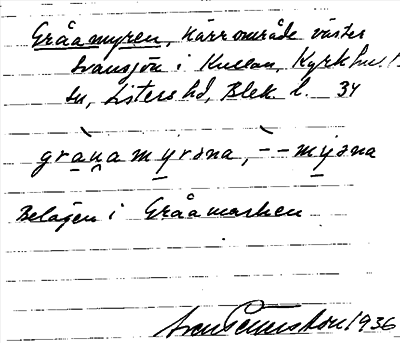 Gråamyren, Kärrområde väster
Svansjön i Kullan, Kyrkhu
sn, Listers hd, Blek. l. 34
grànamyrəna, -̀ -myəna
Belägen i Gråamarken
1936